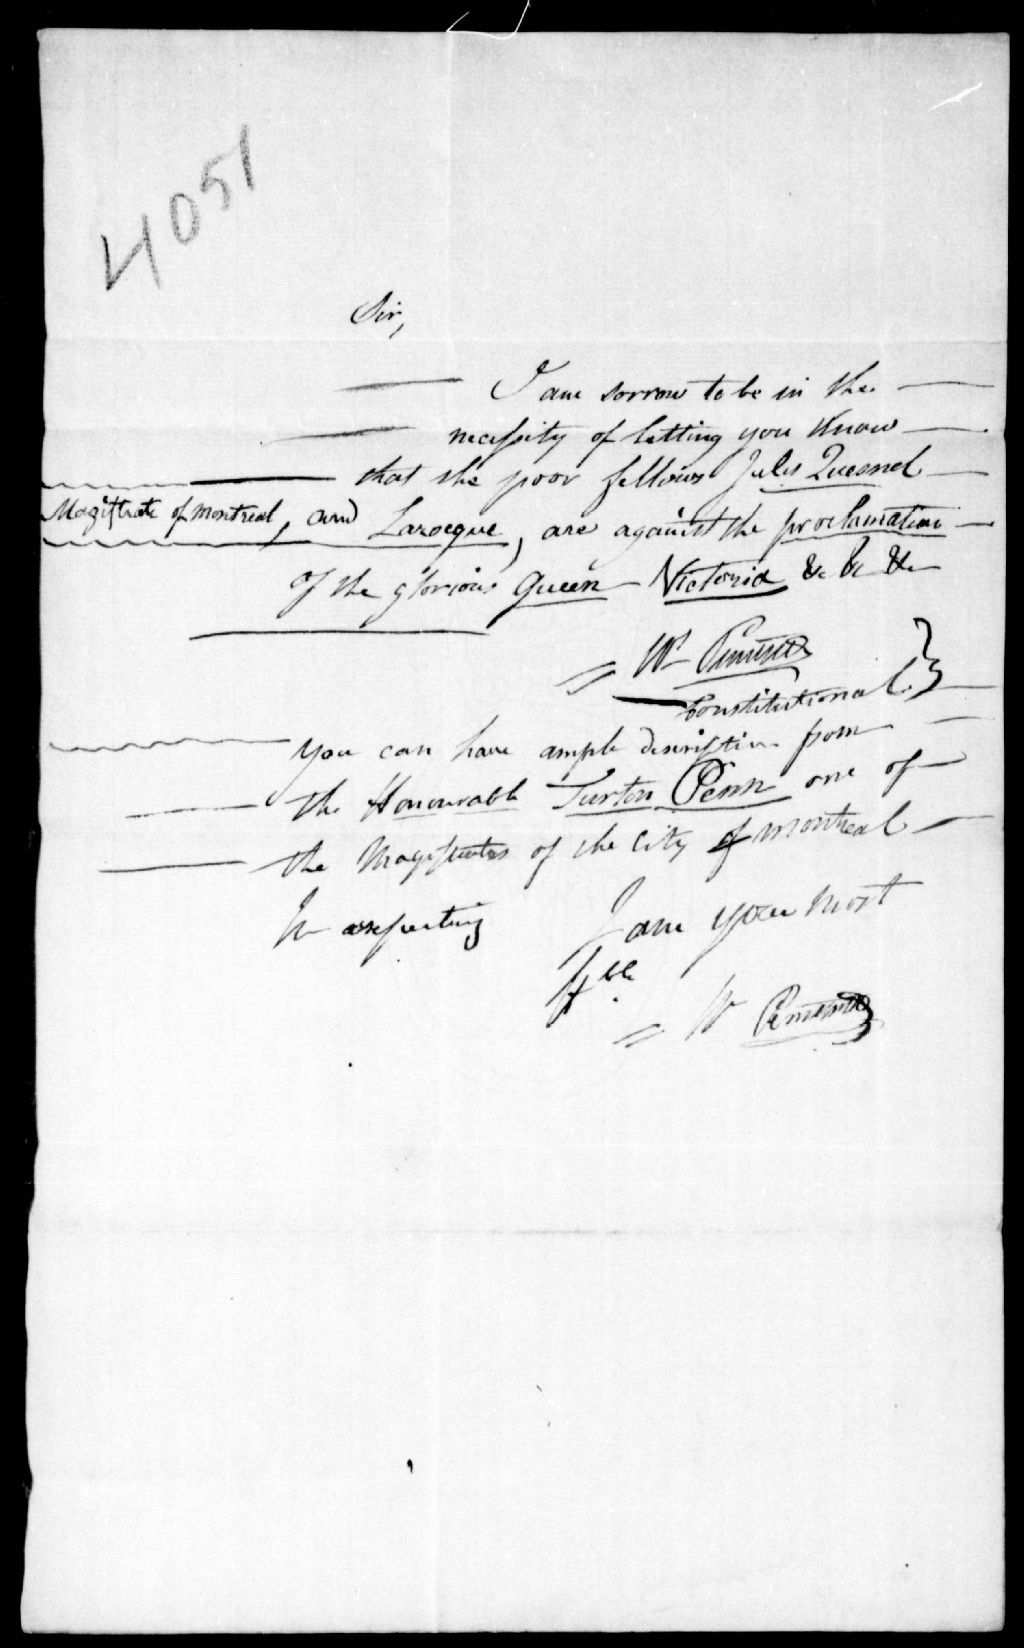 4051
Sir,
I am sorrow to be in the
necessity of letting you know
that the poor fellows Jules Quesnel
Magistrate of Montreal, and Larocque, are against the proclamation
of the glorious Queen Victoria &c &c &c
Wm
Constitutional
You can have ample description from
the Honourable Turton Penn one of
the Magistrates of the City of Montreal
In I am your most
W